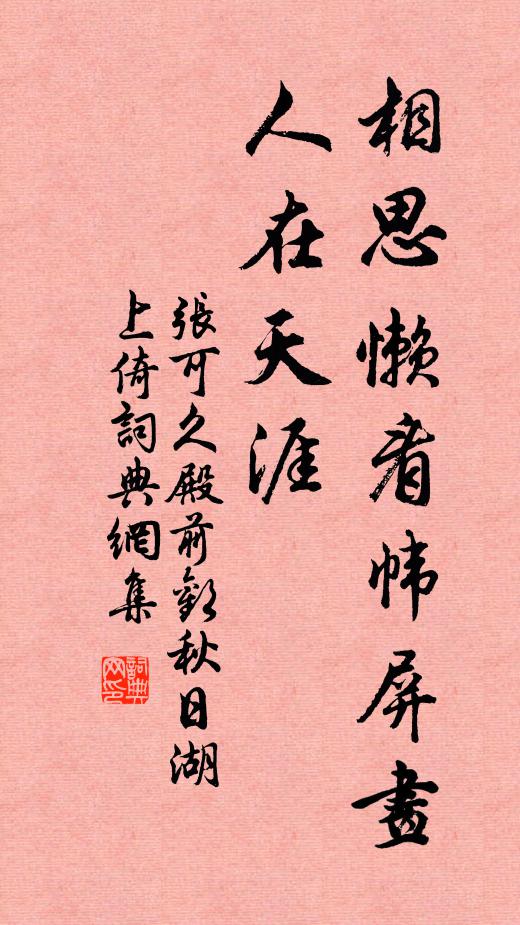 相思懶看幃屏畫
人在天涯
張可久殿前歡秋日湖
上倚詞典網集
詞典
网印